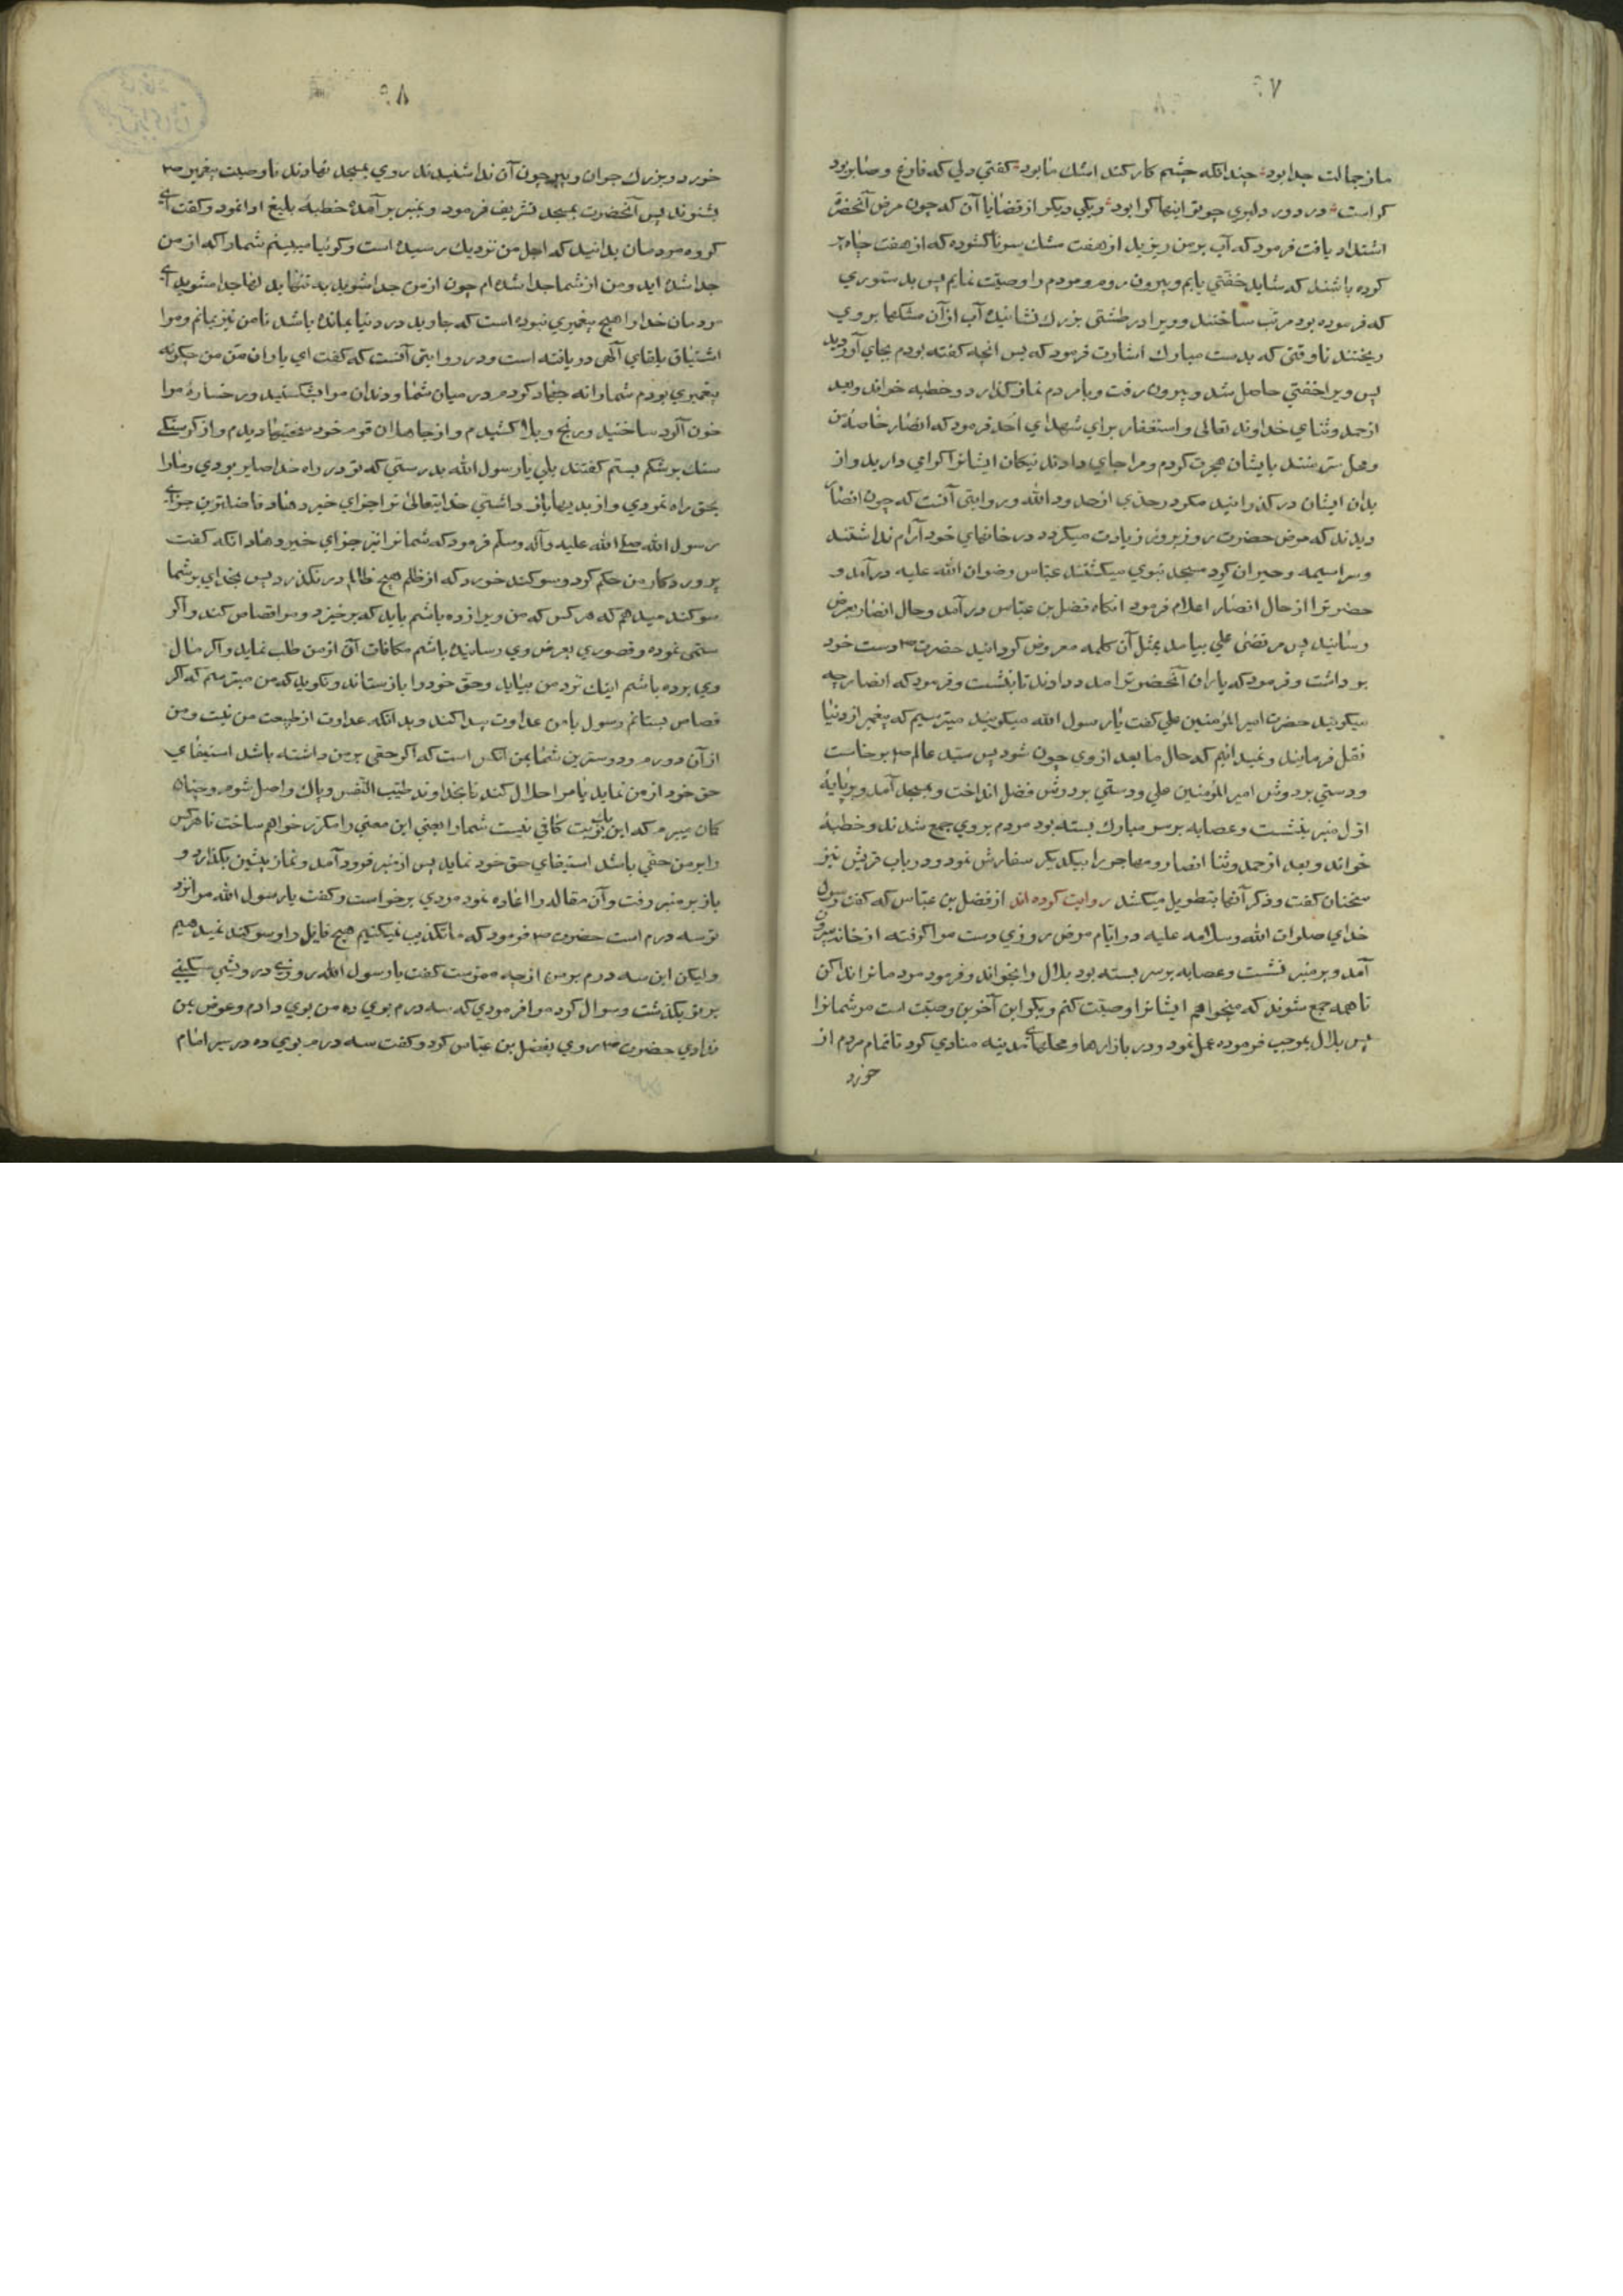 ۹۷
ما از جمالت جدا بود چندانكه چشم كار كند اشك ما بود كفتي دلي كه فارغ و صابر بود
كراست در دور دلبري چو تو اينها كرا بود و يكي ديكر از قضايا آن كه چون مرض آنحضرة
اشتداد يافت فرمود كه آب بر من ريزيد از هفت مشك سر ناكشوده كه از هفت چاه پر
كرده باشند كه شايد خفتي يابم و بيرون روم و مردم را وصيت نمايم پس بدستوري
كه فرموده بود مرتب ساختند و ويرا در طشتي بزرك نشانيده آب از آن مشكها بر وي
ريختند تا وقتي كه بدست مبارك اشارت فرمود كه بس انچه كفته بودم بجاي آورديد
پس ويرا خفتي حاصل شد و بيرون رفت و با مردم نماز كذارد و خطبه خواند و بعد
از حمد و ثناي خداوند تعالى و استغفار براي شهداي احد فرمود كه انصار خاصه من
و محل سر منند بايشان هجرت كردم و مرا جاي دادند نيكان ايشانرا كرامي داريد و از
بدان ايشان در كذرانيد مكر در حدي از حدود الله و روايتي آنست كه چون انصار
ديدند كه مرض حضرت روز بروز زيادت ميكردد در خانهاي خود آرام نداشتند
و سراسيمه و حيران كرد مسجد نبوي ميكشتند عباس رضوان الله عليه درآمد و
حضرترا از حال انصار اعلام فرمود انكاه فضل بن عباس درآمد و حال انصار بعرض
رسانيد پس مرتضى علي بيامد بمثل آن كلمه معروض كردانيد حضرت ص دست خود
بر داشت و فرمود كه ياران آنحضرترا مدد دادند تا بنشست و فرمود كه انصار چه
ميكويند حضرت امير المؤمنين علي كفت يا رسول الله ميكويند ميترسيم كه پيغمبر از دنيا
نقل فرمايند و نميدانيم كه حال ما بعد از وي چون شود پس سيد عالم ص برخاست
و دستي بر دوش امير المؤمنين علي و دستي بر دوش فضل انداخت و بمسجد آمد و بر پايهٔ
اول منبر بنشست و عصابه بر سر مبارك بسته بود مردم بر وي جمع شدند و خطبهٔ
خواند و بعد از حمد و ثنا انصار و مهاجر را بيكديكر سفارش نمود و در باب قريش نيز
سخنان كفت و ذكر آنها بتطويل ميكشد روايت كرده اند از فضل بن عباس كه كفت رسول
خداي صلوات الله و سلامه عليه در ايام مرض روزي دست مرا كرفته از خانه بيرون
آمد و بر منبر نشست و عصابه بر سر بسته بود بلال را بخواند و فرمود مردمانرا ندا كن
تا همه جمع شوند كه ميخواهم ايشانرا وصيت كنم و بكو اين آخرين وصيت است مر شمانرا
پس بلال بموجب فرموده عمل نمود و در بازارها و محلهاي مدينه منادي كرد تا تمام مردم از
خورد
۹۸
خورد و بزرك جوان و پير چون آن ندا شنيدند روي بمسجد نهادند تا وصيت پيغمبر ص
بشنوند پس آنحضرت بمسجد تشريف فرمود و بمنبر بر آمده خطبهٔ بليغ ادا نمود و كفت اي
كروه مردمان بدانيد كه اجل من نزديك رسيده است و كوئيا ميبينم شما را كه از من
جدا شده ايد و من از شما جدا شده ام چون از من جدا شويد به تنها بدلها جدا مشويد اي
مردمان خدا را هيچ پيغمبري نبوده است كه جاويد در دنيا بمانده باشد تا من نيز بمانم و مرا
اشتياق بلقاي آلهي دريافته است و در روايتي آنست كه كفت اي ياران من من چكونه
پيغمبري بودم شما را نه جهاد كردم در ميان شما و دندان مرا بشكستيد و رخسارهٔ مرا
خون آلود ساختيد و رنج و بلا كشيدم و از جاهلان قوم خود سختيها ديدم و از كرسنكي
سنك بر شكم بستم كفتند بلي يا رسول الله بدرستي كه تو در راه خدا صابر بودي و ما را
بحق راه نمودي و از بديها باز داشتي خدايتعالى ترا جزاي خير دهاد فاضلترين جزاي
رسول الله صلى الله عليه و آله و سلم فرمود كه شمانرا نيز جزاي خير دهاد انكه كفت
پروردكار من حكم كرد و سوكند خورد كه از ظلم هيچ ظالم در نكذرد پس بخداي بر شما
سوكند ميدهم كه هر كس كه من ويرا زده باشم بايد كه برخيزد و مرا قصاص كند و اكر
ستمي نموده و قصوري بعرض وي رسانيده باشم مكافات آن از من طلب نمايد و اكر مال
وي بوده باشم اينك نزد من بيايد و حق خود را باز ستاند و نكويد كه من ميترسم كه اكر
قصاص بستانم رسول با من عداوت پيدا كند و بدانكه عداوت از طبيعت من نيست و من
از آن دورم و دوسترين شما بمن انكس است كه اكر حقي بر من داشته باشد استيفاي
حق خود از من نمايد يا مرا حلال كند تا بخداوند طيب النفس و پاك واصل شوم و چنان
كمان ميبرم كه اين يك نوبت كافي نيست شما را يعني اين معني را مكرر خواهم ساخت تا هر كس
را بر من حقي باشد استيفاي حق خود نمايد پس از منبر فرود آمد و نماز پيشين بكذارد و
باز بر منبر رفت و آن مقاله را اعاده نمود مردي برخواست و كفت يا رسول الله مرا نزد
تو سه درم است حضرت ص فرمود كه ما تكذيب نميكنيم هيچ قايل را و سوكند نميدهيم
و ليكن اين سه درم بر من از چه ممرست كفت يا رسول الله روزي درويشي مسكيني
بر تو بكذشت و سوال كرد مرا فرمودي كه سه درم بوي ده من بوي دادم و عوض بمن
ندادي حضرت ص روي بفضل بن عباس كرد و كفت سه درم بوي ده در سر انام